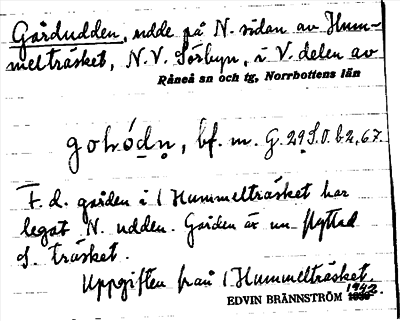 Gårdudden, udde på N. sidan av Hum-
melträsket, N.V. Sörbyn, i V. delen av
Råneå sn och tg, Norrbottens län
bf. m. G. 29 S.O. b. 2, 67.
F. d. gården i 1 Hummelträsket har
legat N. udden. Gården är nu flyttad
S. träsket.
Uppgiften från 1 Hummelträsket.
1942
EDVIN BRÄNNSTRÖM